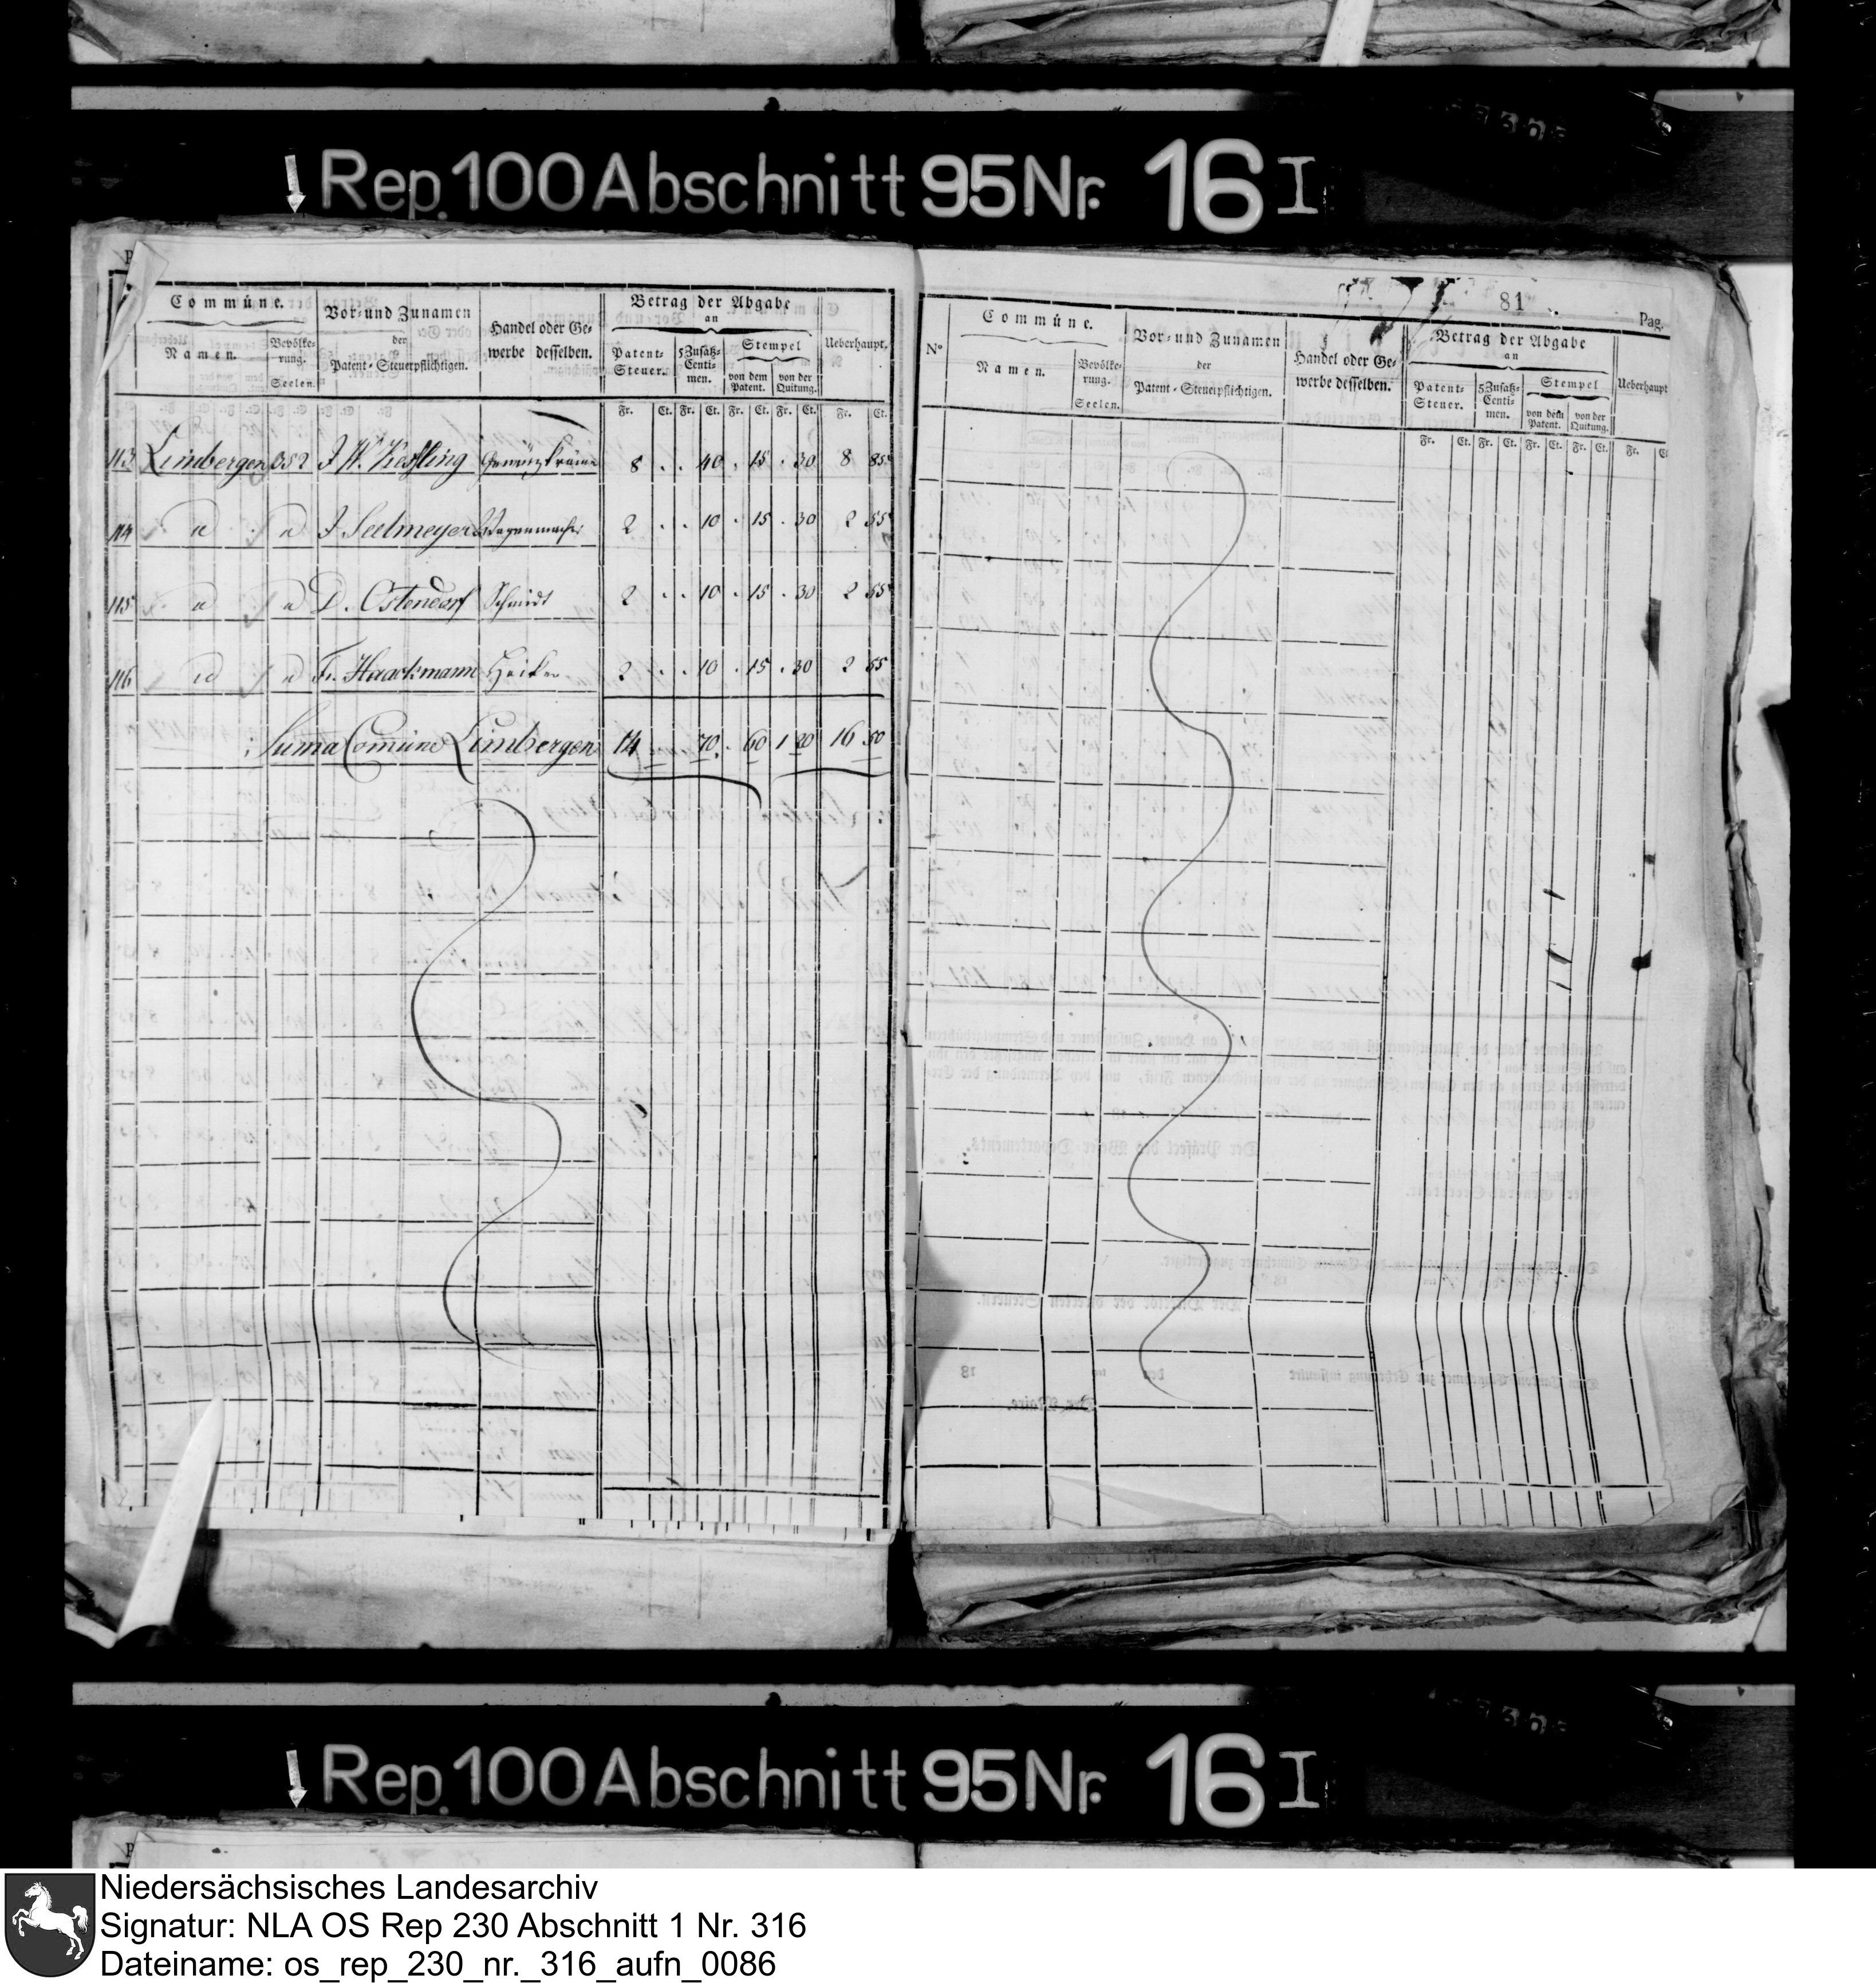 Rep. 100 Abschnitt 95 Nr. 16 I
Commúne.
Vor- und Zunamen
der
Patent-Steuerpflichtigen.
Handel oder Ge-
werbe desselben.
Betrag der Abgabe
an
Namen.
Bevölke-
rung.
Seelen.
Patent-
Steuer.
5 Zusatz-
Centi-
men.
Stempel
von dem
Patent.
von der
Quitung.
Ueberhaupt.
Fr. Ct. Fr. Ct. Fr. Ct. Fr. Ct. Fr. Ct.
113 Limbergen 682 J. W. Kiessling Gewürzkrämer 8 . . 40 . 15 . 30 8 85
114 " " J. Seelmeyer Wagenmacher 2 . . 10 . 15 . 30 2 55
115 " " D. Ostendorf Schmidt 2 . . 10 . 15 . 30 2 55
116 " " Fr. Haackmann Höcker 2 . . 10 . 15 . 30 2 55
Suma Comúne Limbergen 14 70 . 60 1 20 16 50
81
Pag.
N°
Commúne.
Vor- und Zunamen
der
Patent-Steuerpflichtigen.
Handel oder Ge-
werbe desselben.
Betrag der Abgabe
an
Namen.
Bevölke-
rung.
Seelen.
Patent-
Steuer.
5 Zusatz-
Centi-
men.
Stempel
von dem
Patent.
von der
Quitung.
Ueberhaupt
Fr. Ct. Fr. Ct. Fr. Ct. Fr. Ct. Fr.
Rep. 100 Abschnitt 95 Nr. 16 I
Niedersächsisches Landesarchiv
Signatur: NLA OS Rep 230 Abschnitt 1 Nr. 316
Dateiname: os_rep_230_nr._316_aufn_0086